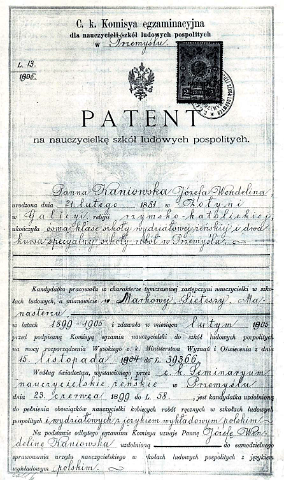 C. k. Komisya egzaminacyjna
dla nauczycieli szkół ludowych pospolitych
w Przemyślu.
L. 13
1905.
PATENT
na nauczycielkę szkół ludowych pospolitych.
Panna Kaniowska Józefa Wendelina
urodzona dnia 21 lutego 1881 w Żołyni
w Galicyi religii rzymsko-katolickiej
ukończyła ósmą klasę szkoły wydziałowej żeńskiej i dwa
kursa specyalnej szkoły robót w Przemyślu
Kandydatka pracowała w charakterze tymczasowej zastępczyni nauczycielki w szko-
łach ludowych, a mianowicie w Markowej, Ma-
nasterzu
w latach 1899-1905 i zdawała w miesiącu lutym 1905
przed podpisaną Komisyą egzamin nauczycielski do szkół ludowych pospolitych
na mocy rozporządzenia Wysokiego c. k. Ministerstwa Wyznań i Oświecenia z dnia
15. listopada 1904 L. 39366
Według świadectwa, wystawionego przez c. k. Seminaryum
nauczycielskie żeńskie w Przemyślu
dnia 23 czerwca 1899 L. 58, jest kandydatka uzdolnioną
do pełnienia obowiązków nauczycielki kobiecych robót ręcznych w szkołach ludowych
pospolitych i wydziałowych z językiem wykładowym polskim
Na podstawie odbytego egzaminu Komisya uznaje Pannę Józefę Wen-
delinę Kaniowską uzdolnioną do samodzielnego
sprawowania urzędu nauczycielskiego w szkołach ludowych pospolitych z językiem
wykładowym polskim.